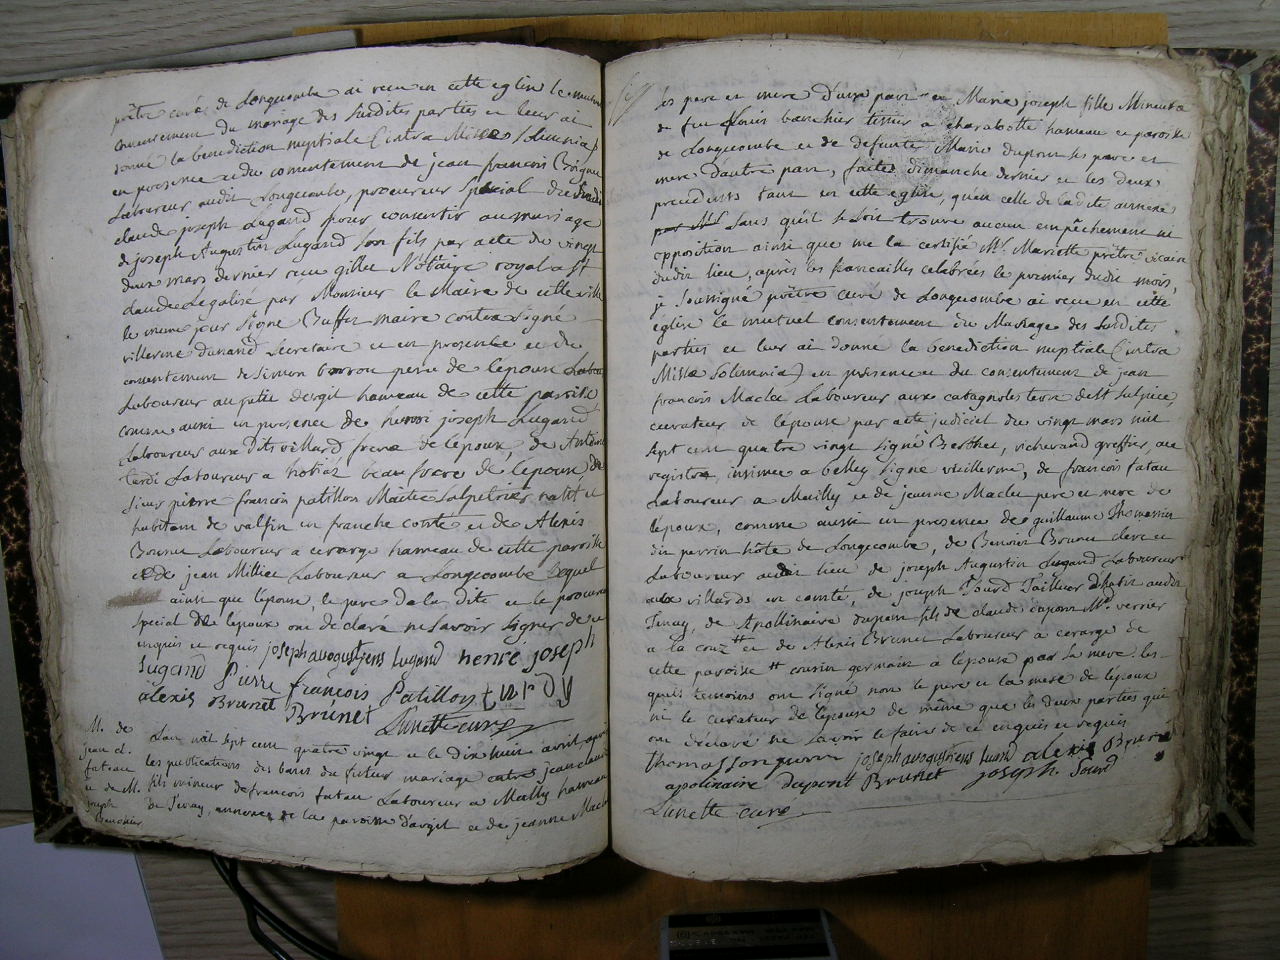 prêtre curé de Longecombe ai recu en cette eglise le mutuel
consentement du mariage des susdites parties et leur ai
donné la benediction nuptiale (intra Missæ solemnia)
en presence et du consentement de jean françois
Laboureur audit Longecombe, procureur special du sieur
claude joseph Lugand pour consentir au mariage
de joseph Augustin Lugand son fils par acte du vingt
deux mars dernier recu gillet Notaire royal a St
claude Legalisé par Monsieur le Maire de cette ville
le meme jour signé Buffet maire contresigné
villerme dunand Secretaire et en presence et du
consentement de Simon pere de l'epouse
Laboureur au petit dergit hameau de cette paroisse
comme aussi en presence de henri joseph Lugand
Laboureur aux dits villard frere de l'epoux, de Antoine
Laboureur a beau frere de l'epouse, de
Sieur pierre françois patillon Maitre Salpetrier natif et
habitant de valfin en franche comté et de Alexis
Brunet Laboureur a cerarge hameau de cette paroisse
et de jean Milliet Laboureur a Longecombe lequel
ainsi que l'epouse, le pere de la dite et le procureur
special de l'epoux ont declaré ne savoir signer de ce
enquis et requis joseph avogustjens lugand henre joseph
Lugand Pierre françois Patillon
alexis Brunet Brunet Lanette curé
M. de
jean cl.
futau
et de M.
joseph
Banchier
L'an mil sept cent quatre vingt et le dix huit avril, après
les publications des bans du futur mariage entre jean claude
fils mineur de françois futau Laboureur a Mailly hameau
de Tenay, annexe de la paroisse d'argit et de jeanne Maclet
ses pere et mere d'une part et Marie joseph fille Mineure
de feu Louis banchier tissier a charabotte hameau et paroisse
de Longecombe et de defunte Marie dupont ses pere et
mere d'autre part, faites dimanche dernier et les deux
precedents tant en cette eglise, qu'en celle de la dite annexe
sans qu'il se soit trouvé aucun empêchement ni
opposition ainsi que me l'a certifié Mr. Mariotte prêtre vicaire
dudit lieu, après les fiancailles celebrées le premier dudit mois,
je soussigné prêtre curé de Longecombe ai recu en cette
église le mutuel consentement du Mariage des susdites
parties et leur ai donné la benediction nuptiale (intra
Missæ solemnia) en presence et du consentement de jean
françois Maclet Laboureur aux catagnoles terre de St Sulpice,
curateur de l'epouse par acte judiciel du vingt mars mil
sept cent quatre vingt signé Berthet, richerand greffier, au
registre, insinué a belley signé vuillerme, de françois futau
Laboureur a Mailly et de jeanne Maclet pere et mere de
l'epoux, comme aussi en presence de guillaume Thomasson
dit perrin hôte de Longecombe, de Benoit Brunet clerc et
Laboureur audit lieu de joseph Augustin Lugand Laboureur
aux villards en comté, de joseph Jourd Tailleur d'habit audit
Tenay, de Apollinaire dupont fils de claude dupont Md. verrier
a la couz et de Alexis Brunet Laboureur a cerarge de
cette paroisse cousin germain a l'epouse par sa mere. les
quels temoins ont signé non le pere et la mere de l'epoux
ni le curateur de l'epouse de même que les deux parties qui
ont déclaré ne savoir le faire de ce enquis et requis
thomasson joseph avogustjens alexis Brunet
apolinaire dupont Brunet joseph Jourd
Lanette curé